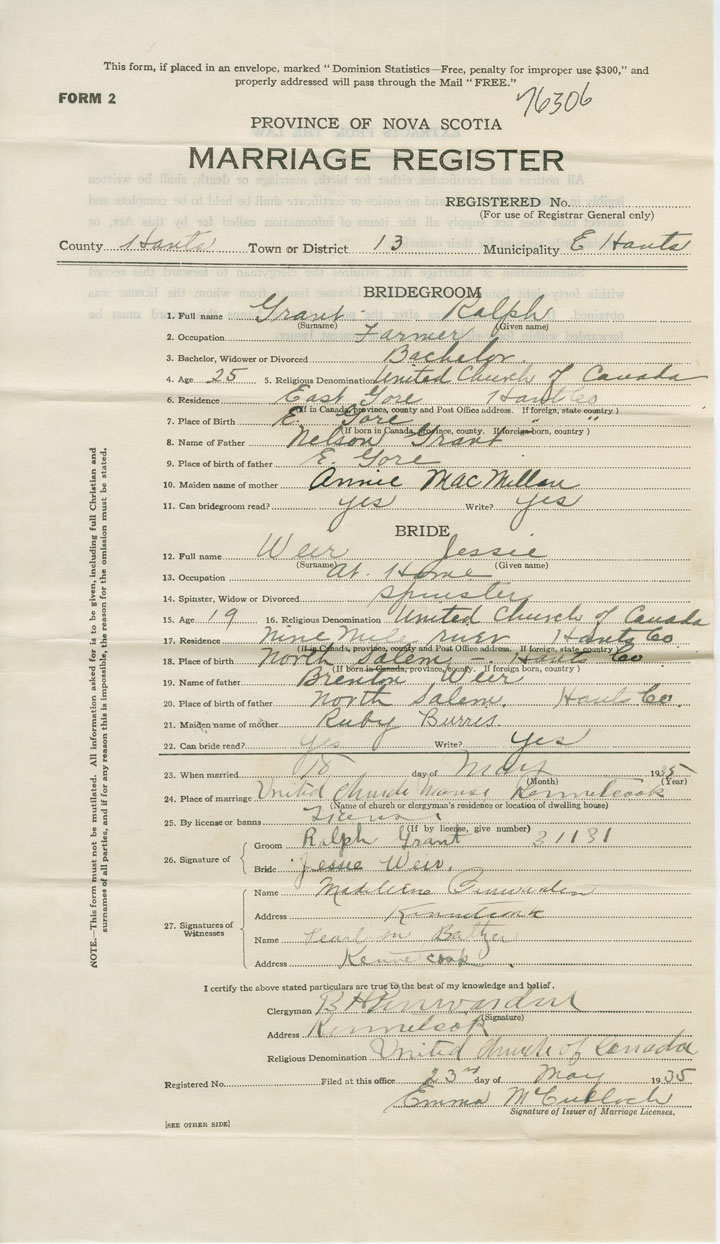 This form, if placed in an envelope, marked "Dominion Statistics—Free, penalty for improper use $300," and
properly addressed will pass through the Mail "FREE."
FORM 2
76306
PROVINCE OF NOVA SCOTIA
MARRIAGE REGISTER
REGISTERED No.
(For use of Registrar General only)
County Hants Town or District 13 Municipality E Hants
BRIDEGROOM
1. Full name Grant Ralph
(Surname) (Given name)
2. Occupation Farmer
3. Bachelor, Widower or Divorced Bachelor
4. Age 25 5. Religious Denomination United Church of Canada
6. Residence East Gore Hants Co
(If in Canada, province, county and Post Office address. If foreign, state country)
7. Place of Birth E. Gore " "
(If born in Canada, province, county. If foreign-born, country)
8. Name of Father Nelson Grant
9. Place of birth of father E. Gore
10. Maiden name of mother Annie MacMillan
11. Can bridegroom read? yes Write? yes
BRIDE
12. Full name Weir Jessie
(Surname) (Given name)
13. Occupation At Home
14. Spinster, Widow or Divorced spinster
15. Age 19 16. Religious Denomination United Church of Canada
17. Residence Nine Mile river Hants Co
(If in Canada, province, county and Post Office address. If foreign, state country)
18. Place of birth North Salem - Hants Co
(If born in Canada, province, county. If foreign born, country)
19. Name of father Brenton Weir
20. Place of birth of father North Salem. Hants Co.
21. Maiden name of mother Ruby Burris
22. Can bride read? Yes Write? Yes
23. When married 18 day of May 1935
(Month) (Year)
24. Place of marriage United Church Manse Kennetcook
(Name of church or clergyman's residence or location of dwelling house)
25. By license or banns License
(If by license, give number) 31131
26. Signature of
Groom Ralph Grant
Bride Jessie Weir.
27. Signatures of Witnesses
Name Madeleine
Address Kennetcook
Name Pearl M
Address Kennetcook
I certify the above stated particulars are true to the best of my knowledge and belief.
Clergyman B H
(Signature)
Address Kennetcook
Religious Denomination United Church of Canada
Registered No. Filed at this office 23rd day of May 1935
Emma McCulloch
Signature of Issuer of Marriage Licenses.
[SEE OTHER SIDE]
NOTE.—This form must not be mutilated. All information asked for is to be given, including full Christian and
surnames of all parties, and if for any reason this is impossible, the reason for the omission must be stated.